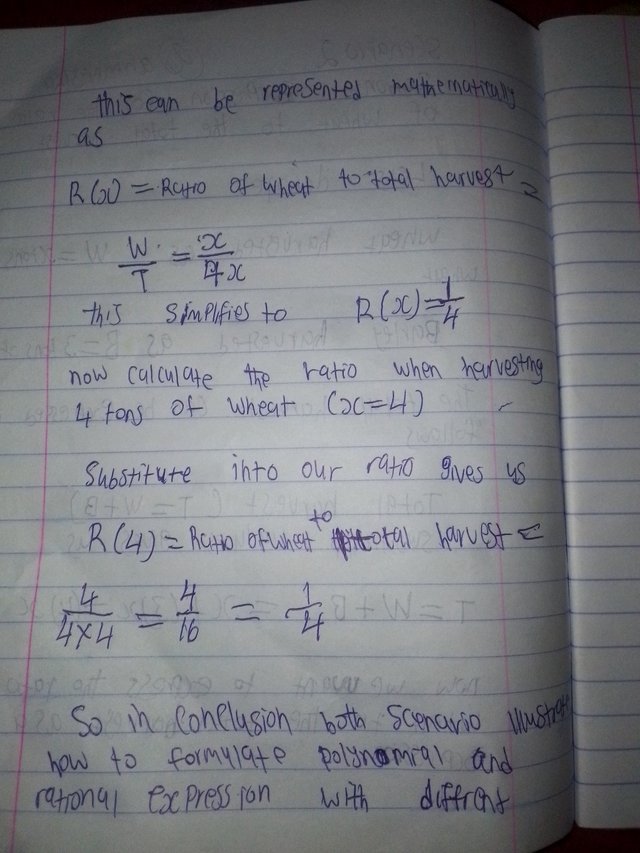 this can be represented mathematically
as
R(x) = Ratio of wheat to total harvest =
W/T = x/4x
this simplifies to R(x) = 1/4
now calculate the ratio when harvesting
4 tons of wheat (x=4)
Substitute into our ratio gives us
R(4) = Ratio of wheat to total harvest =
4/4×4 = 4/16 = 1/4
So in conclusion both scenario illustrate
how to formulate polynomial and
rational expression with diffrent